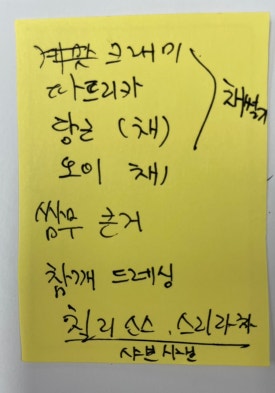 크래미
파프리카
당근 (채)
오이 채
채썰기
쌈무 큰거
참깨 드레싱
칠리소스, 스리라차